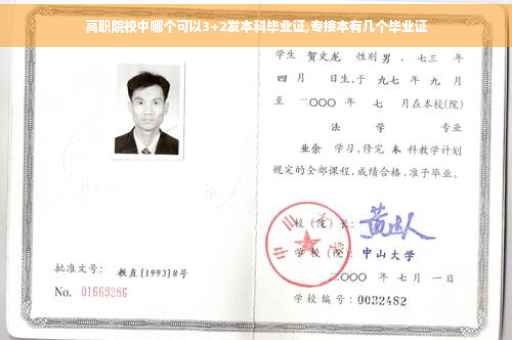 高职院校中哪个可以3+2发本科毕业证,专接本有几个毕业证
学生 贺文龙 性别 男 、 七三 年
四 月 日生,于 九七 年 九 月
至 二〇〇〇 年 七 月在本校(院)
法 学 专业
业余 学习,修完 本 科教学计划
规定的全部课程,成绩合格,准予毕业。
校 (院) 长:
学 校 (院): 中山大学
二〇〇〇 年 七 月 一 日
批准文号: 教直[1993]8号
No. 01669286
学校编号: 0032482